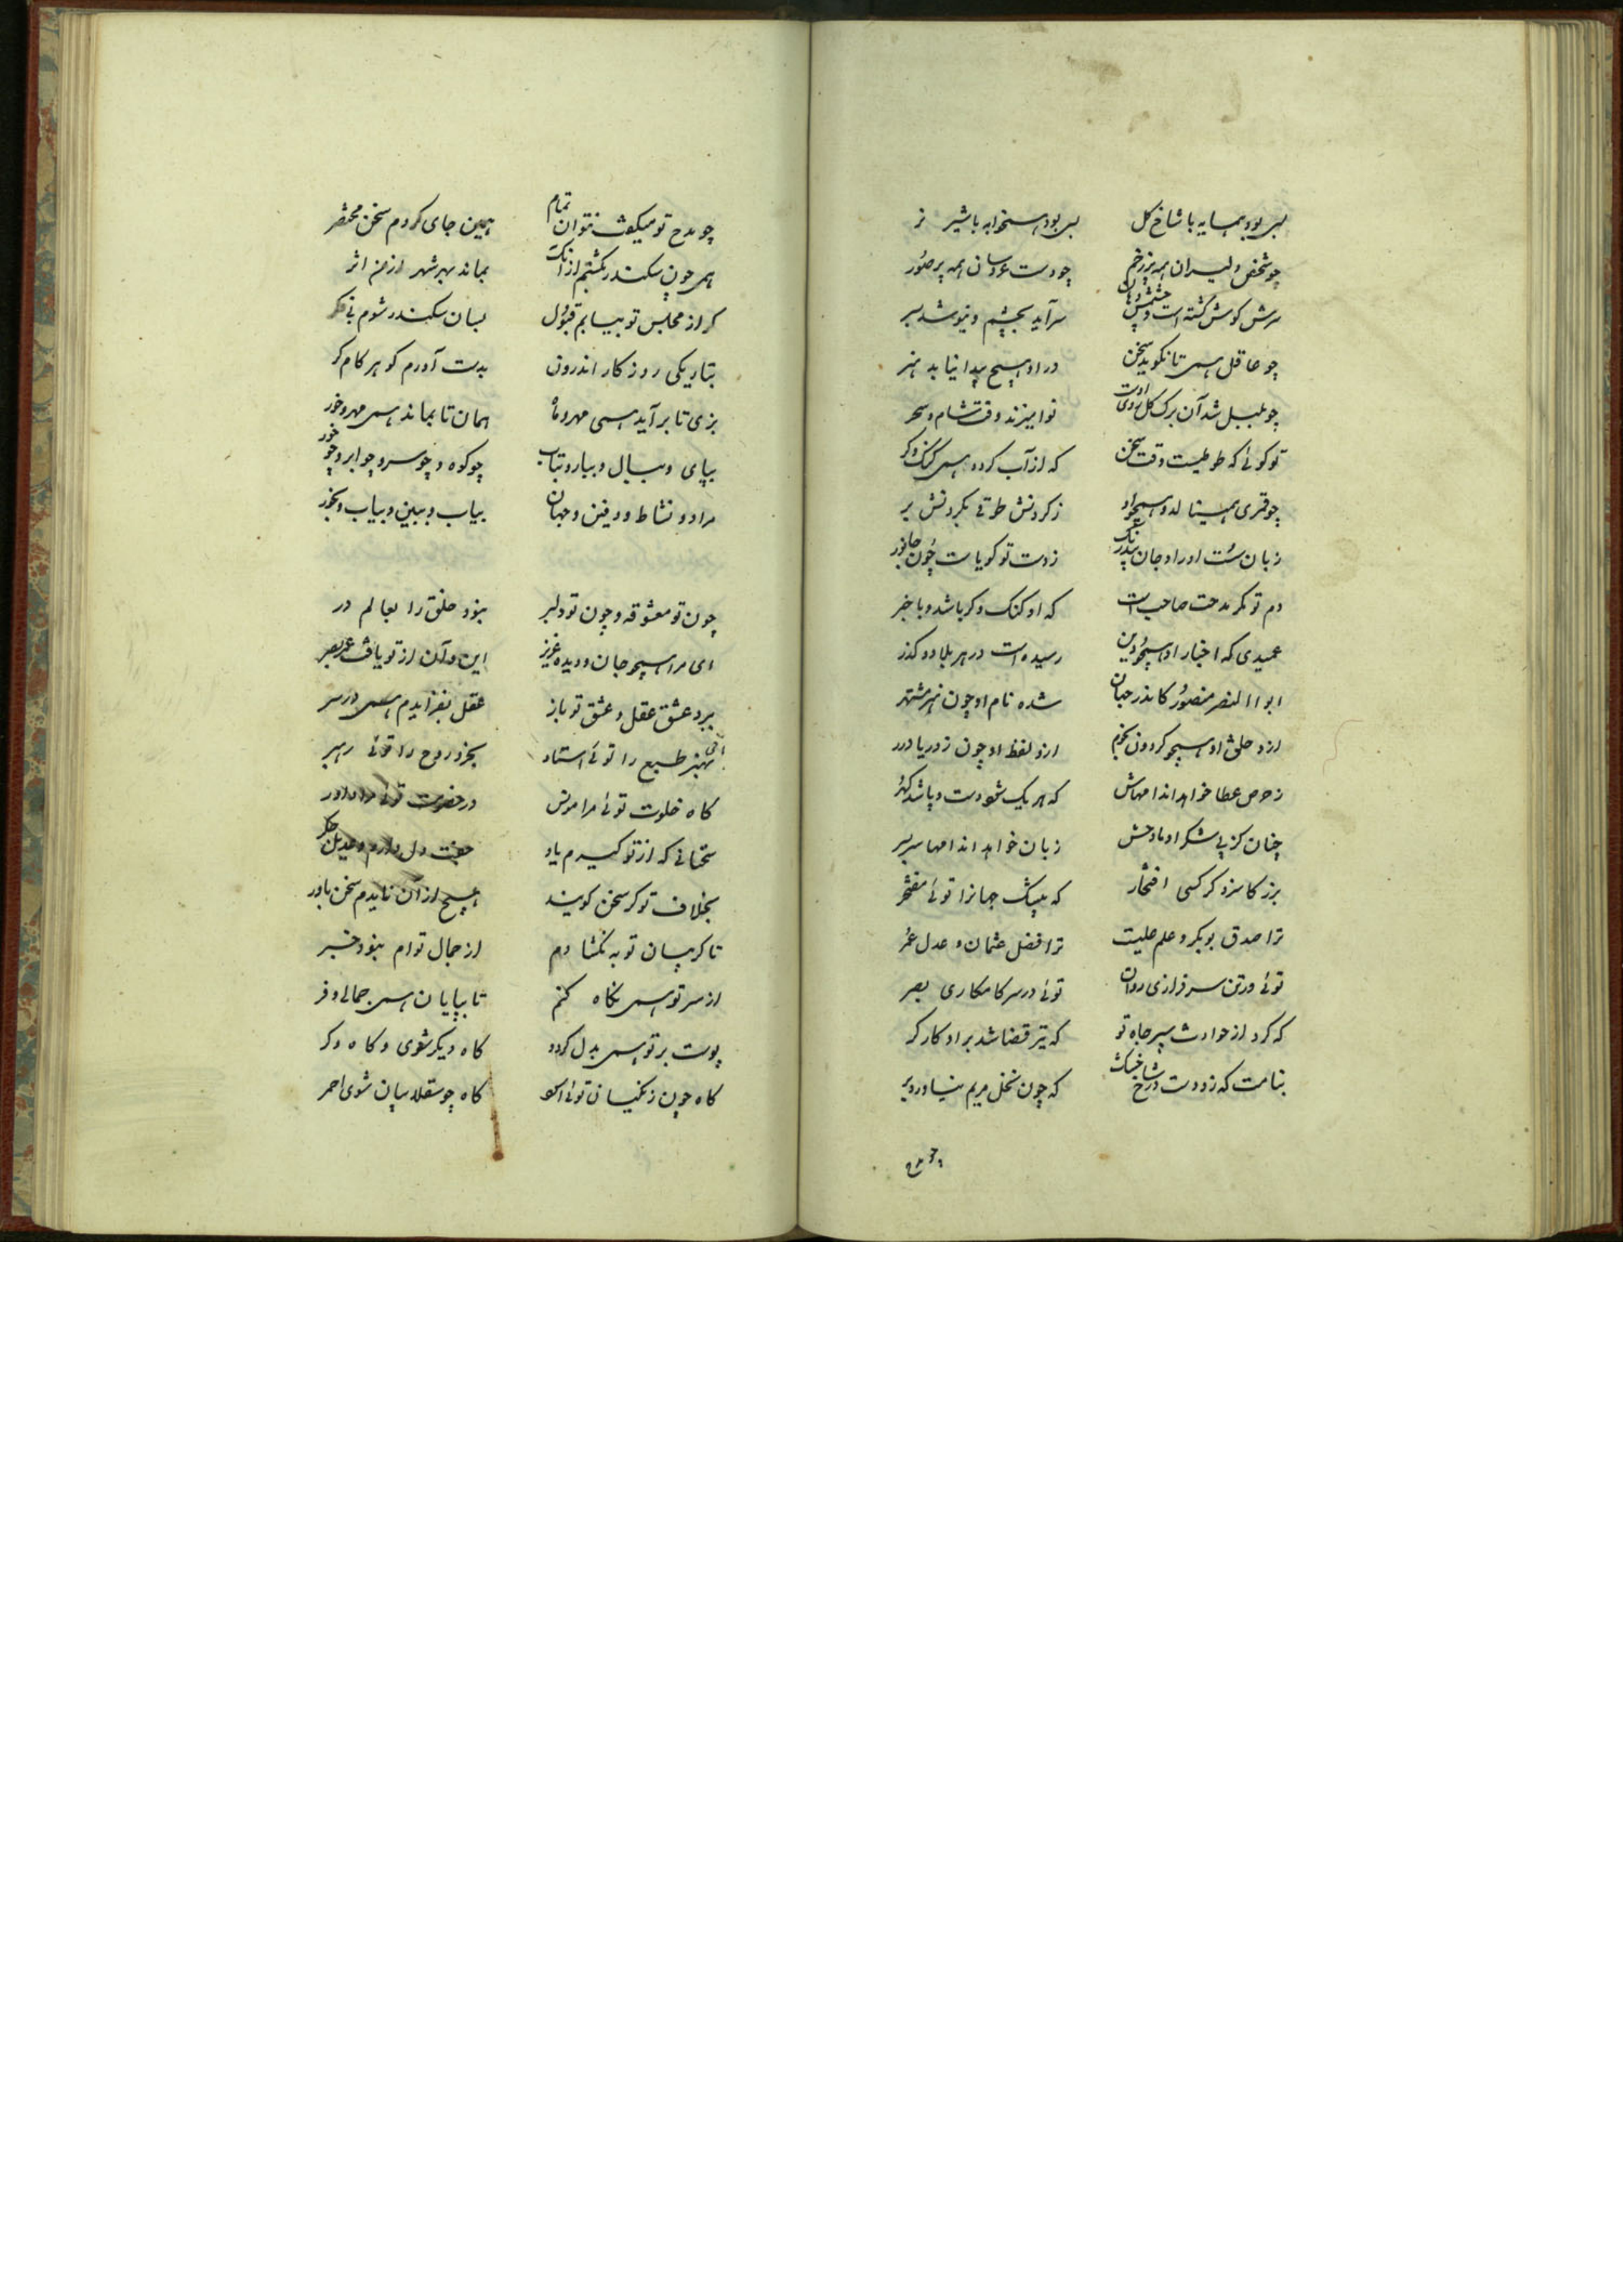 بسی بوده همسایه با شاخ گل بسی بوده همخوابه با شیر نر
چو شخص دلیران همه پر زخم چو دست عروسان همه پر صور
سرش گوش گشته است و چشمش دهان سر آید بچشم و نیوشد بسر
چو عاقل همی تا نگوید سخن در او هیچ پیدا نیاید هنر
چو بلبل شد آن برگ گل روی اوست نوا میزند وقت شام و سحر
تو گوئی که طوطیست وقت سخن که از آب گردد همی گنگ و کر
چو قمری همینالد و همچو او ز گردنش طوقی بگردنش بر
زبان نیست او را و جان بیدرنگ ز دست تو گویاست چون جانور
دم تو مگر مدحت صاحب است که او گنگ و کر باشد و با خبر
عمیدی که اخبار او همچو دین رسیده است در هر بلاد و گذر
ابو االنصر منصور کاندر جهان شده نام او چون هنر مشتهر
ازو خلق او همچو گردون نجوم ازو لفظ او چون ز دریا درر
ز حرص عطا خواهد اندامهاش که هر یک شود دست و پاشد گهر
چنان کز پی شکر او مادحش زبان خواهد اندامها سر بسر
بزرگا سزد گر کسی افتخار که بیشک جهانرا توئی مفتخر
ترا صدق بوبکر و علم علیست ترا فضل عثمان و عدل عمر
توئی در تن سرفرازی روان توئی در سر کامکاری بصر
که کرد از حوادث سپر جاه تو که تیر قضا شد بر او کارگر
بنامت که زد دست در شاخ خشک که چون نخل مریم نیاورد بر
چو مدح تو میگفت نتوان تمام همین جای کردم سخن مختصر
همی چون سکندر بگشتم از آنک بماند بهر شهر از من اثر
گر از مجلس تو بیابم قبول بسان سکندر شوم نی مگر
بتاریکی روزگار اندرون بدست آورم گوهر کام گر
بزی تا بر آید همی مهر و ماه همان تا بماند همی مهر و خور
بپای و ببال و ببار و بتاب چو کوه و چو سرو و چو ابر و چو خور
مراد و نشاط و دفین و جهان بیاب و ببین و بیاب و بخور
چون تو معشوقه و چون تو دلبر نبود خلق را بعالم در
ای مرا همچو جان و دیده عزیز این و آن از تو یافت عمر بصر
ببرد عشق عقل و عشق تو باز عقل بفزایدم همی در سر
بهنر طبع را توئی استاد بخرد روح را توئی رهبر
گاه خلوت توئی مرا مونس در حضرت توئی مرا داور
سخنانی که از تو گیرم یاد جفت دل دارم و عدیل جگر
بخلاف تو گر سخن گویند هیچ از آن نایدم سخن باور
تا گریبان تو به نگشادم از جمال توام نبود خبر
از سر تو همی نگاه کنم تا بپایان همی جمالی و فر
پوست بر تو همی بدل گردد گاه دیگر شوی و گاه دگر
گاه چون زنگیان توئی اسود گاه چو سقلابیان شوی احمر
چون تو